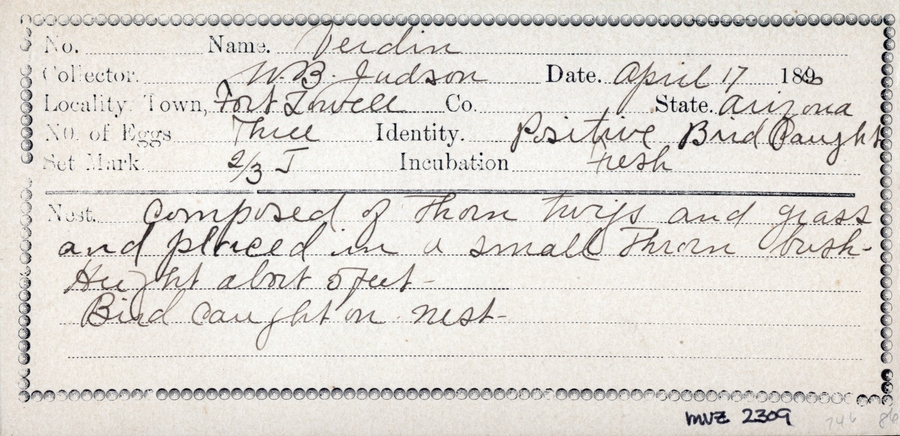 No. Name. Verdin
Collector. W. B. Judson Date. April 17 189
Locality. Town, Fort Lowell Co. State. Arizona
No. of Eggs Three Identity. Positive Bird Caught
Set Mark 2/3 J Incubation Fresh
Nest. Composed of thorn twigs and grass
and placed in a small Thorn bush-
Height about 5 feet-
Bird caught on nest-
MVZ 2309